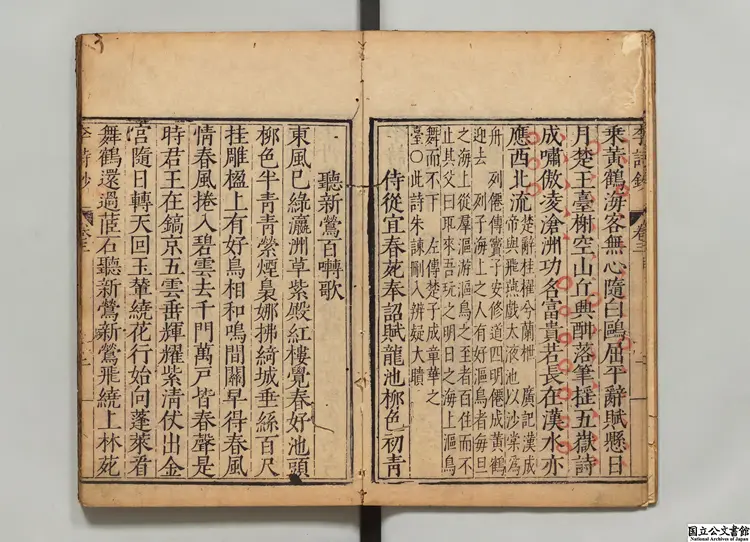 乘黃鶴海客無心隨白鷗屈平辭賦懸日
月楚王臺榭空山丘興酣落筆揺五嶽詩
成嘯傲凌滄洲功名富貴若長在漢水亦
應西北流
楚辭桂櫂兮蘭枻 廣記漢成
帝與飛燕戲太液池以沙棠爲
舟 列僊傳竇子安修道四明僊成黃鶴
迎去 列子海上之人有好漚鳥者每旦
之海上從羣漚游漚鳥之至者百住而不
止其父曰取來吾玩之明日之海上漚鳥
舞而不下 左傳楚子成章華之
臺〇此詩朱諫刪入辨疑大
侍從宜春苑奉詔賦龍池栁色初青
聽新鶯百囀歌
東風巳綠瀛洲草紫殿紅樓覺春好池頭
栁色半青青縈煙裊娜拂綺城垂絲百尺
挂雕楹上有好鳥相和鳴間關早得春風
情春風捲入碧雲去千門萬戸皆春聲是
時君王在鎬京五雲垂輝耀紫清仗出金
宮隨日轉天回玉輦繞花行始向蓬萊看
舞鶴還過茝石聽新鶯新鶯飛繞上林苑
李詩鈔 卷三
国立公文書館
National Archives of Japan